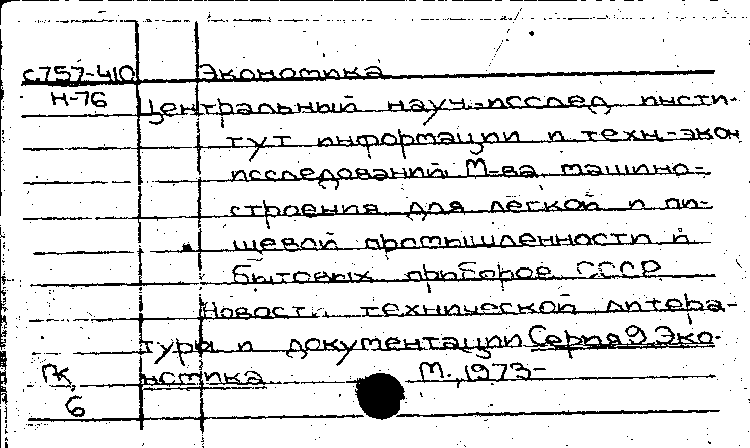 с757-410 Экономика
Н-76
Центральный науч.-исслед. инсти-
тут информации и техн.-экон
исследований М-ва машино-
строения для легкой и пи-
щевой промышленности и
бытовых приборов СССР
Новости технической литера-
туры и документации Серия 9. Эко-
номика М., 1973-
6